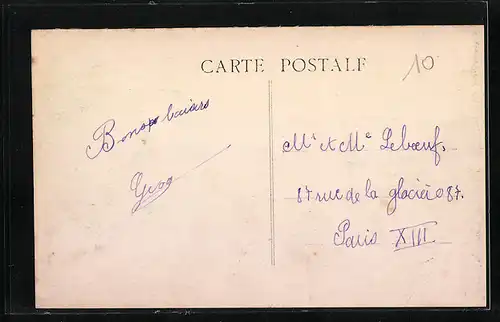 CARTE POSTALE
10
Bons baisers
Mr & Me Leboeuf.
87 rue de la glacière 87.
Paris XIII